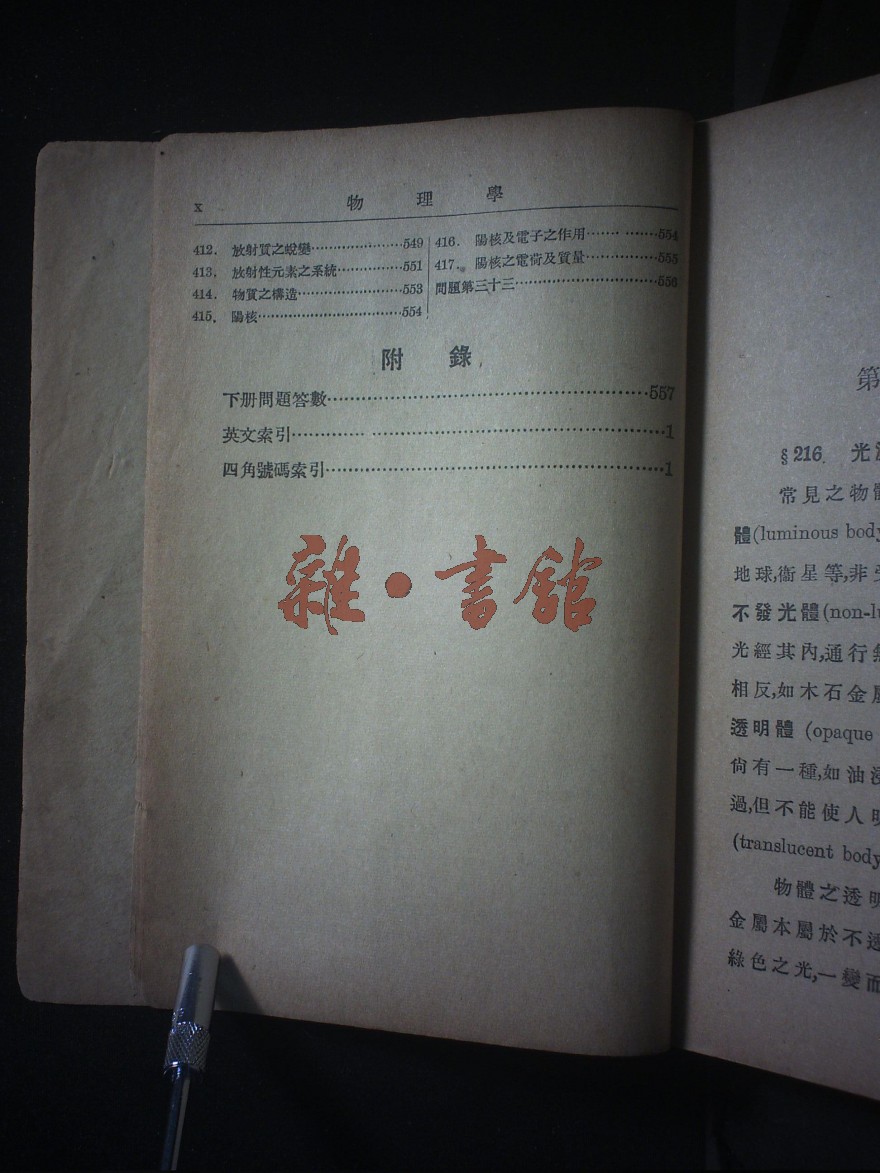 x 物理學
412. 放射質之蛻變…………………549
413. 放射性元素之系統……………551
414. 物質之構造……………………553
415. 陽核……………………………554
416. 陽核及電子之作用……………554
417. 陽核之電荷及質量……………555
問題第三十三………………………556
附錄
下册問題答數……………………………………557
英文索引…………………………………………1
四角號碼索引……………………………………1
雜·書館
第
§216. 光
常見之物體
體(luminous body
地球,衞星等,非
不發光體(non-lu
光經其內,通行
相反,如木石金
透明體 (opaque
尙有一種,如油浸
過,但不能使人明
(translucent body
物體之透明
金屬本屬於不透
綠色之光,一變而